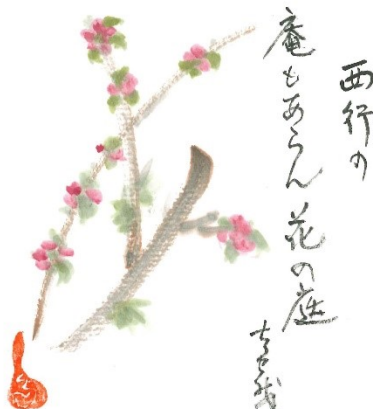 西行の
庵もあらん花の庭